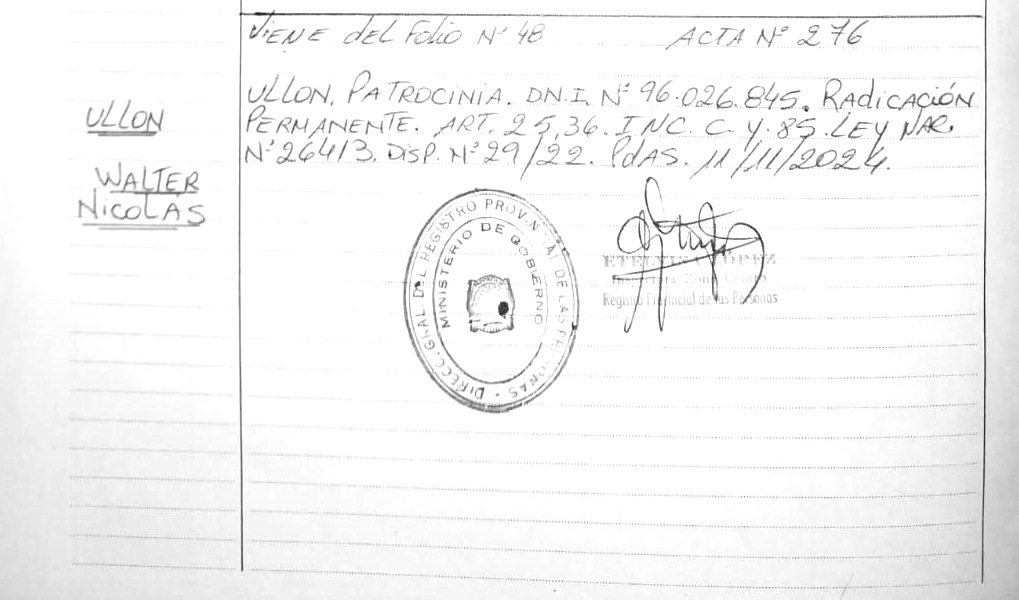 Viene del Folio N° 48 ACTA N° 276
ULLON
WALTER
Nicolás
ULLON, PATROCINIA. D.N.I. N° 96.026.845. Radicación
PERMANENTE. ART. 25,36. INC. C. Y. 85. LEY NAC.
N° 26413. Disp. N° 29/22. Pdas. 11/11/2024.
DIRECC. GRAL. DEL REGISTRO PROVINCIAL DE LAS PERSONAS
MINISTERIO DE GOBIERNO
ETELVINA LOPEZ
Registro Provincial de las Personas